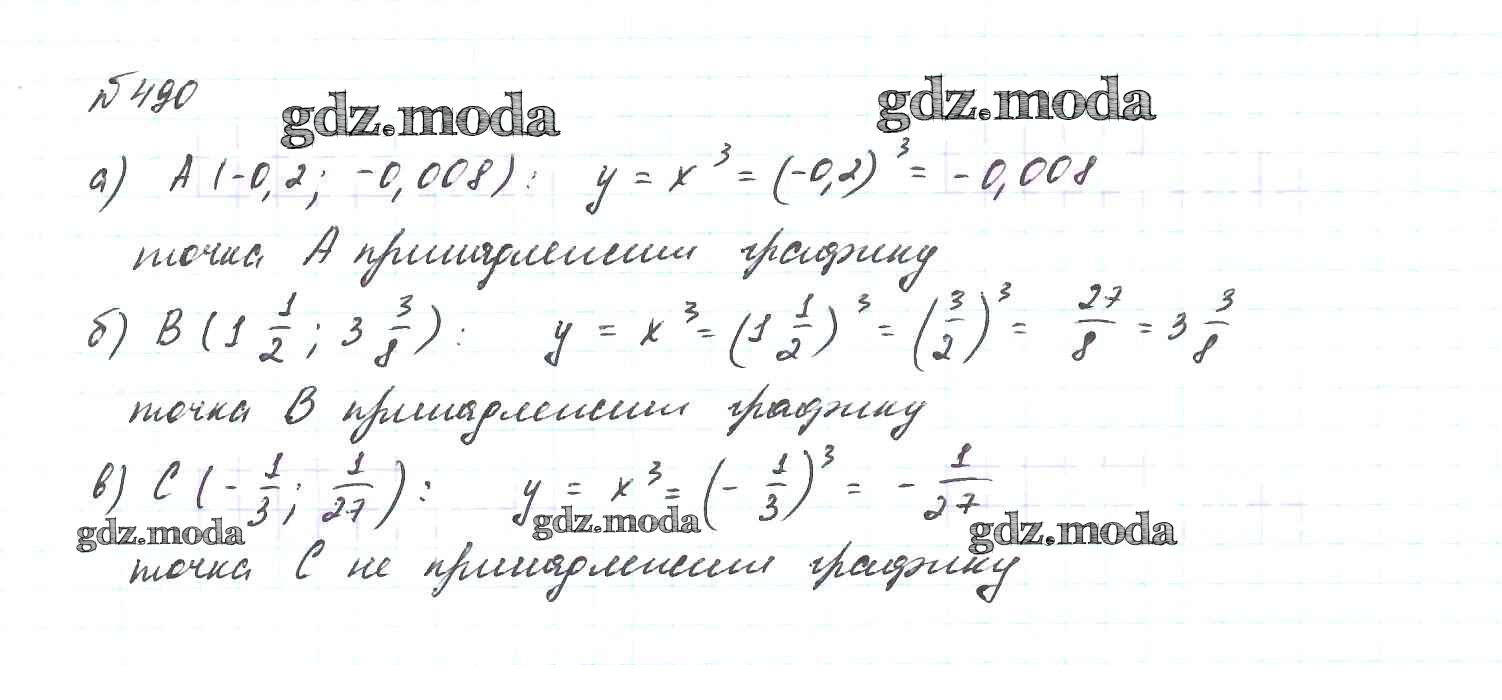 № 490
gdz.moda gdz.moda
а) A (-0,2; -0,008): y = x³ = (-0,2)³ = -0,008
точка A принадлежит графику
б) B (1 1/2; 3 3/8): y = x³ = (1 1/2)³ = (3/2)³ = 27/8 = 3 3/8
точка B принадлежит графику
в) C (- 1/3; 1/27): y = x³ = (- 1/3)³ = - 1/27
gdz.moda gdz.moda gdz.moda
точка C не принадлежит графику